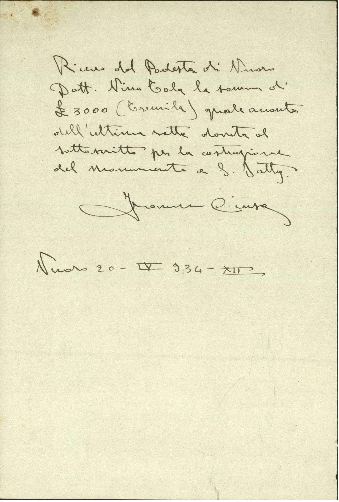 Ricevo dal Podestà di Nuoro
Dott. Nino Tola la somma di
£ 3000 (Tremila) quale acconto
dell'ultima rata dovuta al
sottoscritto per la costruzione
del monumento a S. Satta.
Francesco Ciusa
Nuoro 20 - IV 934 - XII